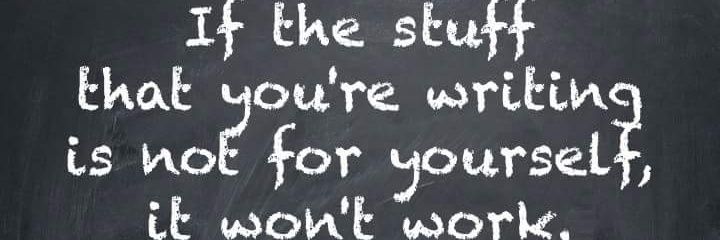 If the stuff
that you're writing
is not for yourself,
it won't work.